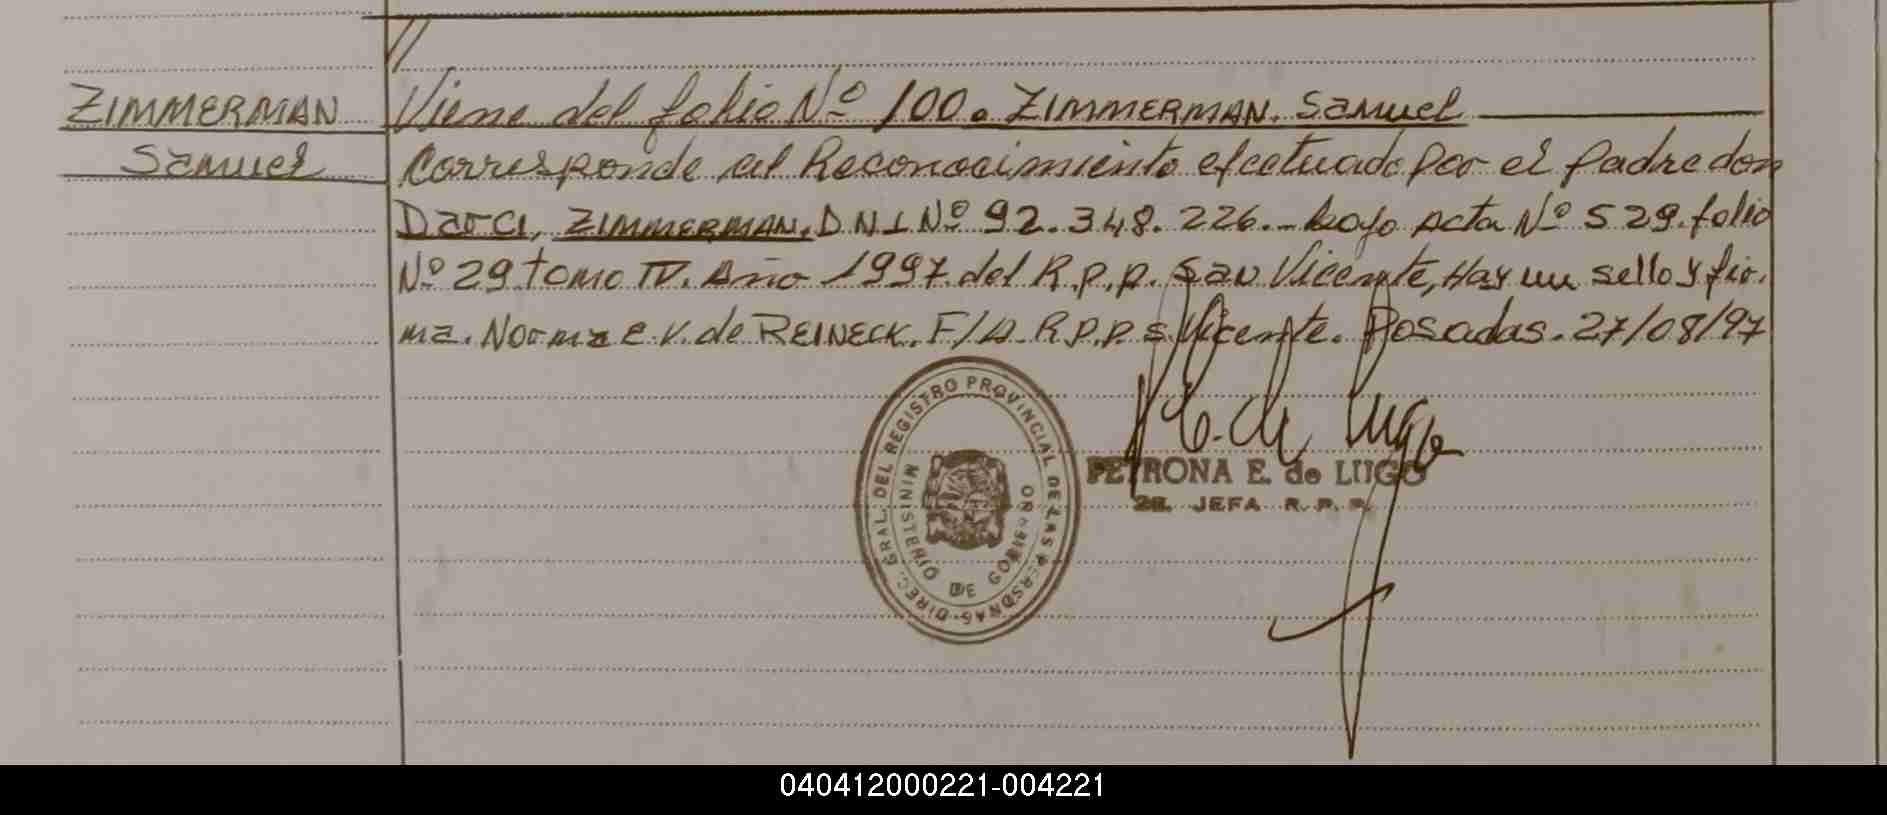 //
ZIMMERMAN
Samuel
Viene del folio Nº 100. ZIMMERMAN. Samuel
Corresponde al Reconocimiento efectuado por el padre don
Darci, ZIMMERMAN. D N I Nº 92.348.226.- bajo Acta Nº 529. folio
Nº 29 tomo IV. Año 1997 del R.p.p. San Vicente, Hay un sello y fir.
ma. Norma E. V. de REINECK. F/A. R.p.p. S. Vicente. Posadas. 27/08/97
DIREC. GRAL. DEL REGISTRO PROVINCIAL DE LAS PERSONAS
MINISTERIO DE GOBIERNO
E. de Lugo
PETRONA E. de LUGO
2a. JEFA R. P. P.
040412000221-004221